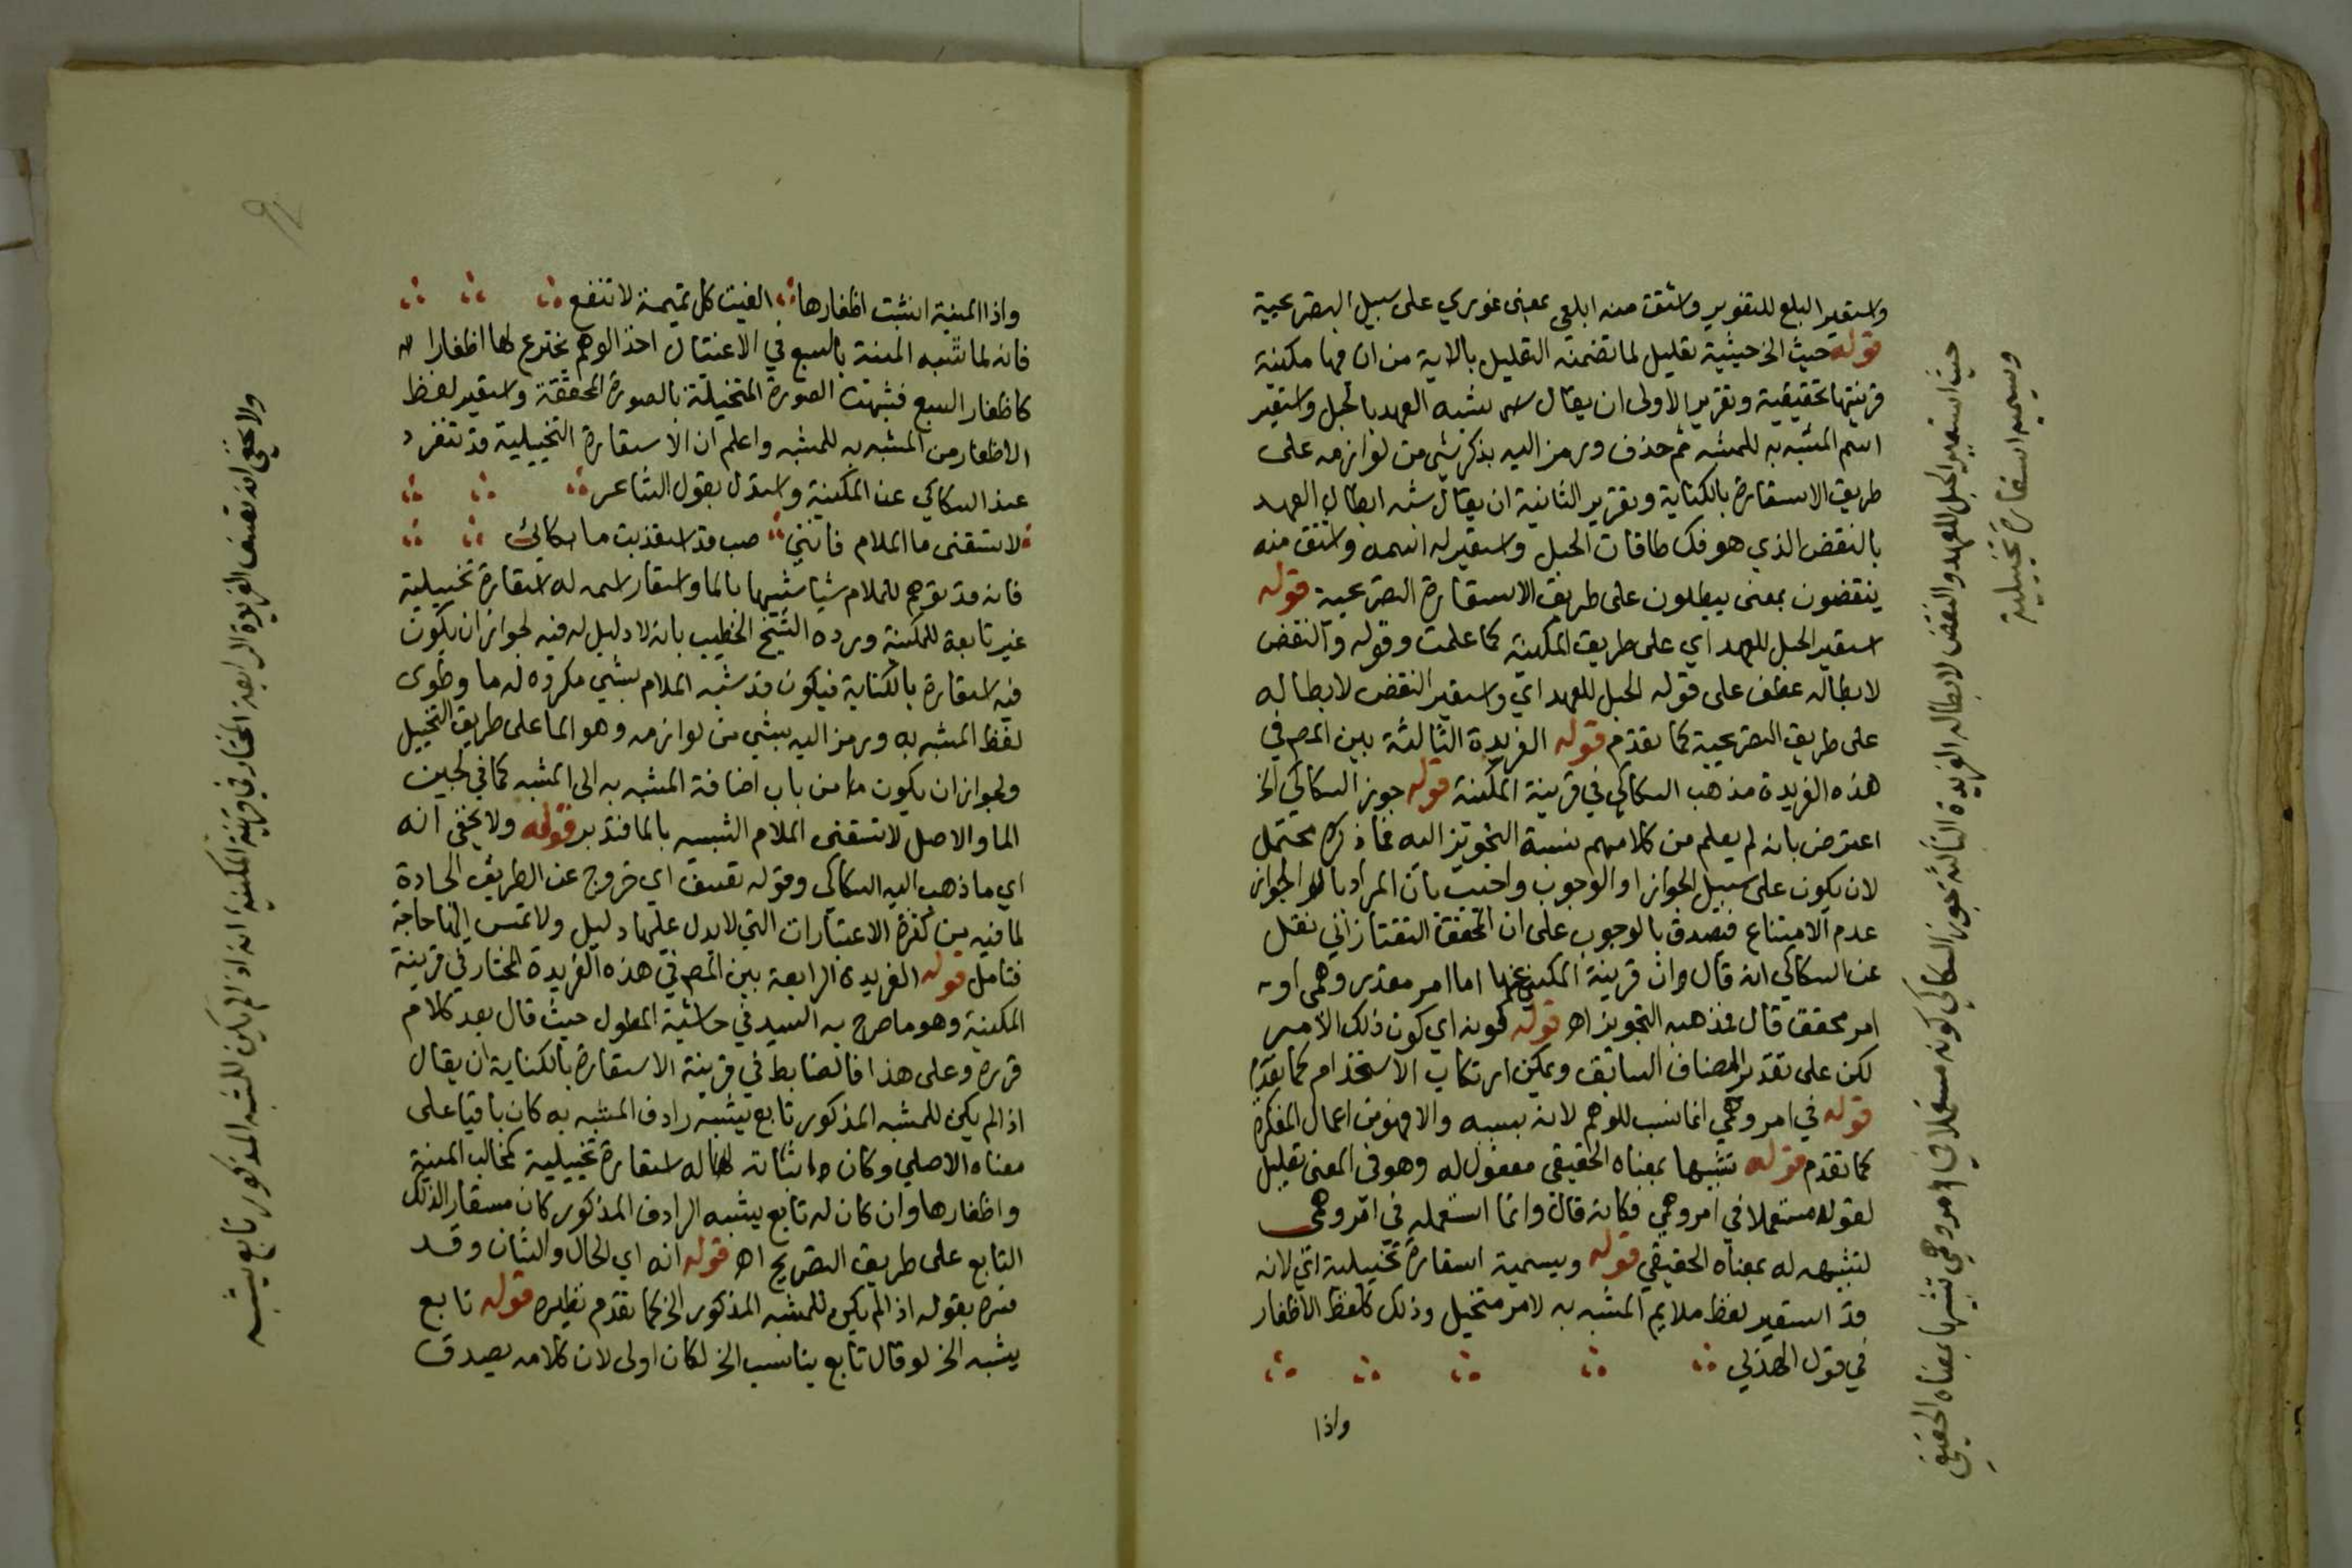 واستعير البلع للتغوير واشتق منه ابلعي بمعنى غوري على سبيل التصريحية
قوله حيث الخ حيثية تعليل لما تضمنه التعليل بالاية من ان فيها مكنية
قرينتها تحقيقية وتقرير الاولى ان يقال شبه العهد بالحبل واستعير
اسم المشبه به للمشبه ثم حذف ورمز اليه بذكر شي من لوازمه على
طريق الاستعارة بالكناية وتقرير الثانية ان يقال شبه ابطال العهد
بالنقض الذي هو فك طاقات الحبل واستعير له اسمه واشتق منه
ينقضون بمعنى يبطلون على طريق الاستعارة التصريحية قوله
استعير الحبل للعهد اي على طريق المكنية كما علمت وقوله والنقض
لابطاله عطف على قوله الحبل للعهد اي واستعير النقض لابطاله
على طريق التصريحية كما تقدم قوله الفريدة الثالثة بين المص في
هذه الفريدة مذهب السكاكي في قرينة المكنية قوله جوز السكاكي الخ
اعترض بانه لم يعلم من كلامهم نسبة التجويز اليه فما ذكره محتمل
لان يكون على سبيل الجواز او الوجوب واجيب بان المراد بالجواز
عدم الامتناع فيصدق بالوجوب على ان المحقق التفتازاني نقل
عن السكاكي انه قال ان قرينة المكني عنها اما امر مقدر وهمي او
امر محقق قال فمذهبه التجويز اه قوله كونه اي كون ذلك الامر
لكن على تقدير المضاف السابق ويمكن ارتكاب الاستخدام كما تقدم
قوله في امر وهمي انما نسب للوهم لانه بسببه والا فهو من اعمال المفكرة
كما تقدم قوله تشبيها بمعناه الحقيقي مفعول له وهو في المعنى تعليل
لقوله مستعملا في امر وهمي فكانه قال وانما استعمله في امر وهمي
لتشبيهه له بمعناه الحقيقي قوله ويسميه استعارة تخييلية اي لانه
قد استعير لفظ ملايم المشبه به لامر متخيل وذلك كلفظ الاظفار
في قول الهذلي
واذا
حيث استعير الحبل للعهد والنقض لابطاله الفريدة الثالثة جوز السكاكي كونه مستعملا في امر وهمي تشبيها بمعناه الحقيقي
ويسميه استعارة تخييلية
٩٢
واذا المنية انشبت اظفارها الفيت كل تميمة لا تنفع
فانه لما شبه المنية بالسبع في الاغتيال اخذ الوهم يخترع لها اظفارا
كاظفار السبع فشبهت الصورة المتخيلة بالصورة المحققة واستعير لفظ
الاظفار من المشبه به للمشبه واعلم ان الاستعارة التخييلية قد تنفرد
عند السكاكي عن المكنية واستدل بقول الشاعر
لا تسقني ما الملام فانني صب قد استعذبت ما بكائي
فانه قد توهم للملام شيا شبيها بالما واستعار اسمه له استعارة تخييلية
غير تابعة للمكنية ورده الشيخ الخطيب بانه لا دليل له فيه لجواز ان يكون
فيه استعارة بالكناية فيكون قد شبه الملام بشي مكروه له ما وطوى
لفظ المشبه به ورمز اليه بشي من لوازمه وهو الما على طريق التخييل
ولجواز ان يكون من باب اضافة المشبه به الى المشبه كما في لجين
الما والاصل لا تسقني الملام الشبيه بالما فتدبر قوله ولا يخفى انه
اي ما ذهب اليه السكاكي وقوله تعسف اي خروج عن الطريق الجادة
لما فيه من كثرة الاعتبارات التي لا يدل عليها دليل ولا تمس اليها حاجة
فتامل قوله الفريدة الرابعة بين المص في هذه الفريدة المختار في قرينة
المكنية وهو ما صرح به السيد في حاشية المطول حيث قال بعد كلام
قرره وعلى هذا فالضابط في قرينة الاستعارة بالكناية ان يقال
اذا لم يكن للمشبه المذكور تابع يشبه رادف المشبه به كان باقيا على
معناه الاصلي وكان اثباته له استعارة تخييلية كمخالب المنية
واظفارها وان كان له تابع يشبه الرادف المذكور كان مستعارا لذلك
التابع على طريق التصريح اه قوله انه اي الحال والشان وقد
فسره بقوله اذا لم يكن للمشبه المذكور الخ كما تقدم نظيره قوله تابع
يشبه الخ لو قال تابع يناسب الخ لكان اولى لان كلامه يصدق
ولا يخفى انه تعسف الفريدة الرابعة المختار في قرينة المكنية انه اذا لم يكن للمشبه المذكور تابع يشبه